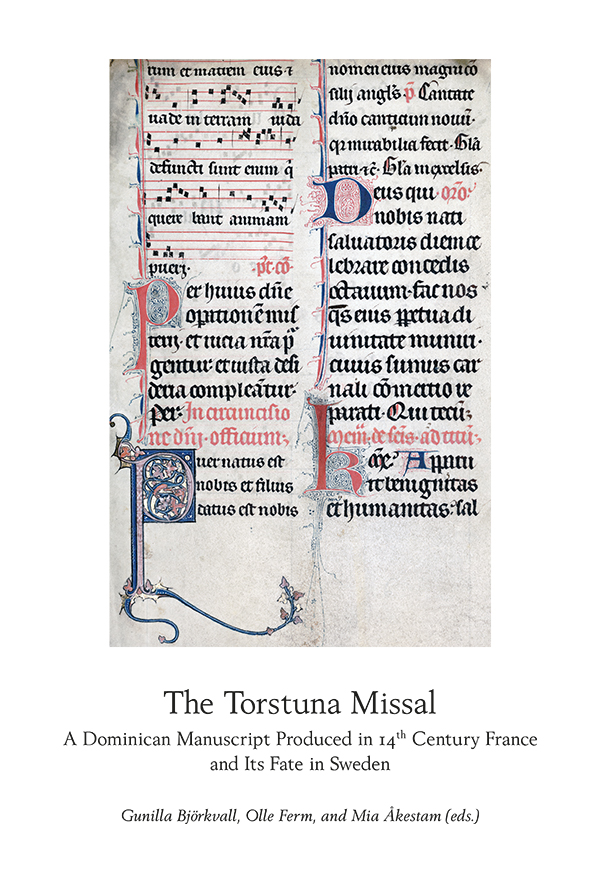 tum et matrem eius ⁊
uade in terram iuda
defuncti sunt enim q̄
querebant animam
pueri. p̄t cō.
Per huius dn̄e
opationē mis
terij. et uicia nr̄a p̄
gentur et iusta desi
deria compleātur.
Per. In circuncisio
ne dn̄j. officium;
Puer natus est
nobis et filius
datus est nobis
nomen eius magni cō
silij angls̄. p̄ Cantate
dn̄o canticum nouū.
qr mirabilia fecit. Gl̄a
patri ⁊c̄. Gl̄a in excelsis.
Deus qui oro̅.
nobis nati
saluatoris diem ce
lebrare concedis
octauum. fac nos
q̄s eius ꝑpetua di
uinitate muniri.
cuius sumus car
nali cōmertio re
parati. Qui tecū;
ad titū;
Kme̅. Apparu
it benignitas
et humanitas. sal
The Torstuna Missal
A Dominican Manuscript Produced in 14th Century France
and Its Fate in Sweden
Gunilla Björkvall, Olle Ferm, and Mia Åkestam (eds.)